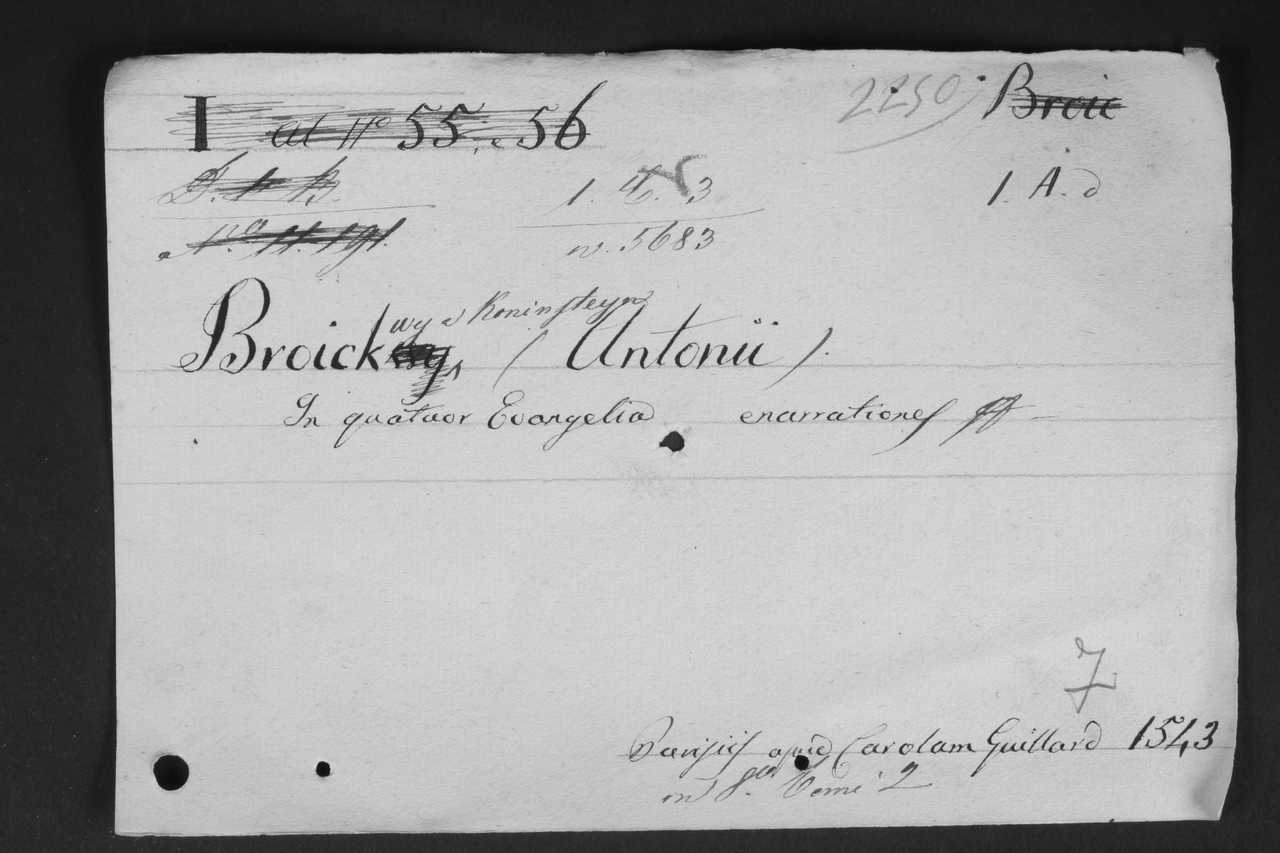 I al N° 55. e 56
2250 Broic
1. 4. 3
1. A. d
n. 5683
Broickwy a Koninsteyn (Antonii).
In quatuor Evangelia enarrationes
7
Parisiis apud Carolam Guillard 1543
in 8.° Tomi 2